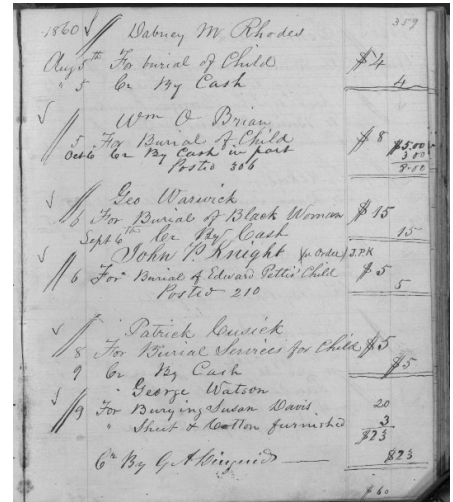 359
1860 Dabney M. Rhodes
Aug 5th For burial of Child $4
" 5 Cr By Cash 4
Wm O Brian
5 For Burial of Child $8
Oct 6 Cr By Cash in part $5.00
Posted 306 3 00
8.00
Geo Warwick
6 For Burial of Black Woman $15
Sept 6th Cr By Cash 15
John P Knight (per Order) J.P.K
6 For Burial of Edward Pettis' Child $5
Posted 210 5
Patrick Cusick
8 For Burial Services for Child $5
9 Cr By Cash $5
George Watson
9 For Burying Susan Davis 20
" Sheet & Cotton furnished 3
$23
Cr By G A $23
$60